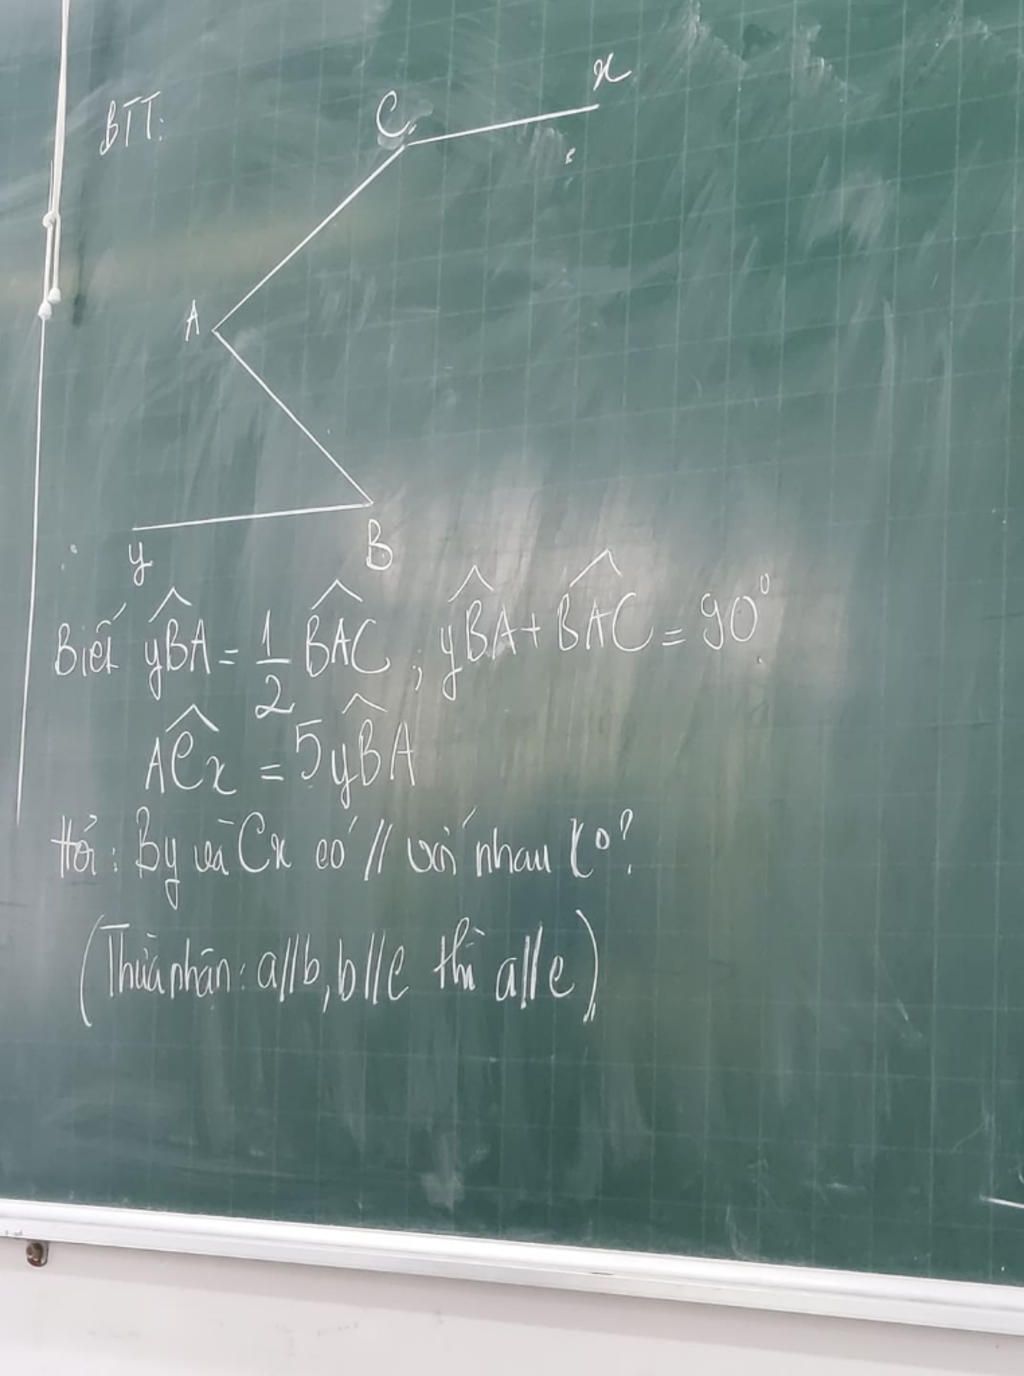 BTT:
C x
A
y B
Biết yBA = 1/2 BAC ; yBA + BAC = 90°
ACx = 5yBA
Hỏi: By và Cx có // với nhau ko?
(Thừa nhận: a//b, b//c thì a//c)